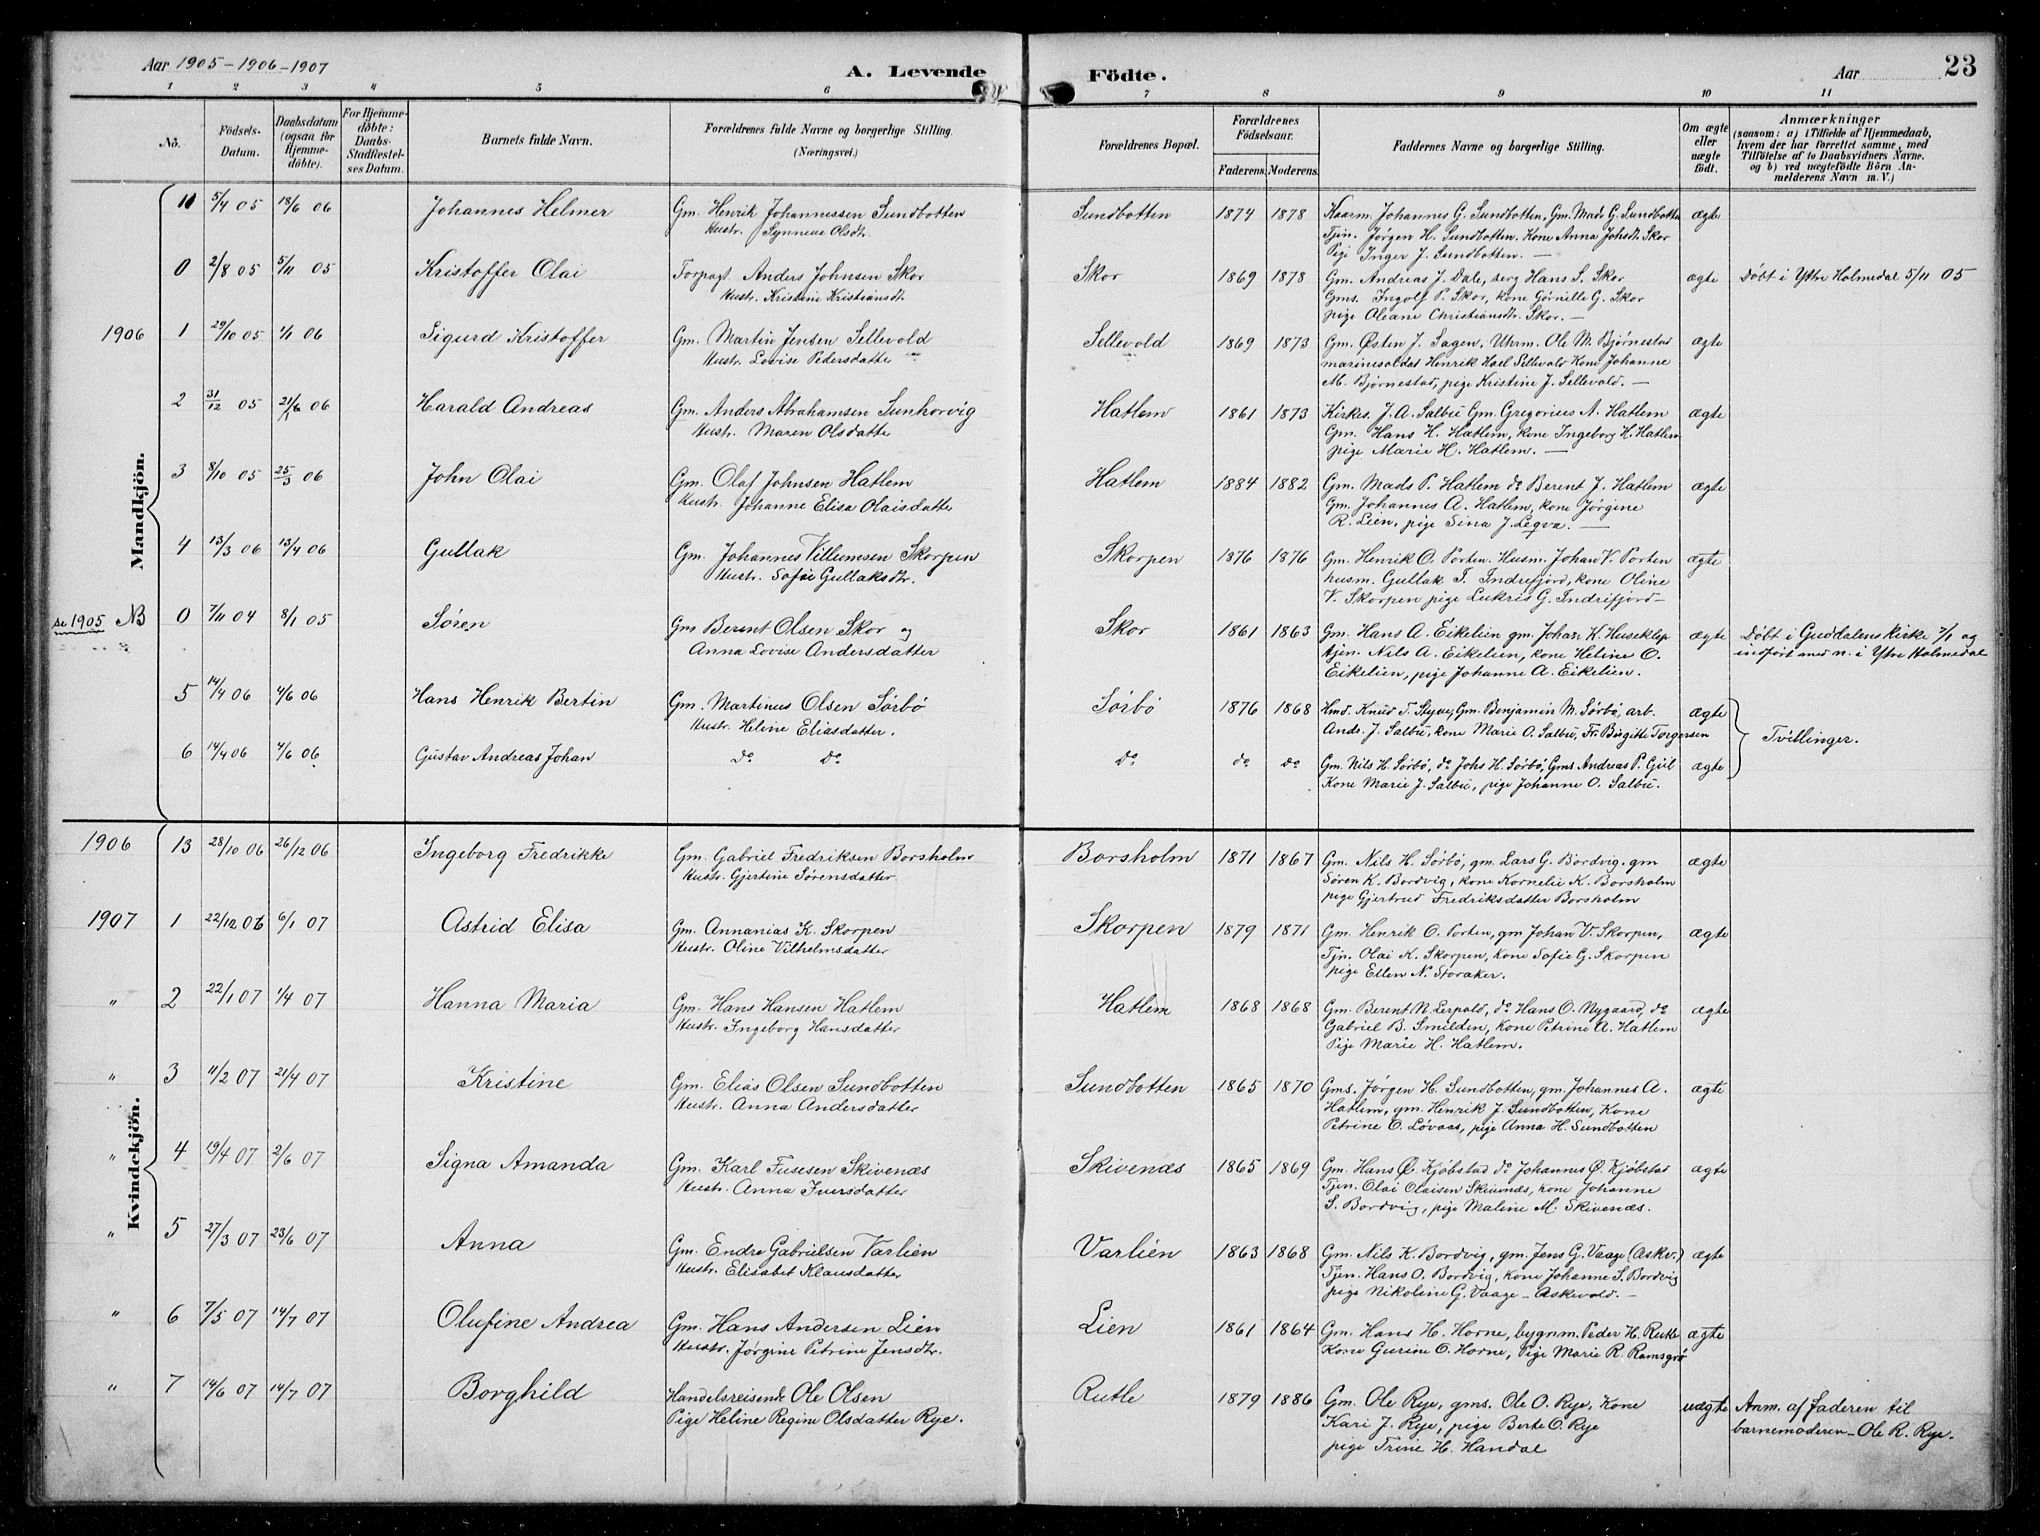 Aar 1905 - 1906 - 1907
A. Levende
Födte.
Aar
23
1 2 3 4 5 6 7 8 9 10 11
No.
Födsels-
Datum.
Daabsdatum
(ogsaa for
Hjemme-
döbte).
For Hjemme-
döbte:
Daabs-
Stadfæstel-
ses Datum.
Barnets fulde Navn.
Forældrenes fulde Navne og borgerlige Stilling.
(Næringsvei.)
Forældrenes Bopæl.
Forældrenes
Födselsaar.
Faderens. Moderens.
Faddernes Navne og borgerlige Stilling.
Om ægte
eller
uægte
födt.
Anmærkninger
(saasom: a) i Tilfælde af Hjemmedaab,
hvem der har forrettet samme, med
Tilföielse af to Daabsvidners Navne.
og b) ved uægtefödte Börn An-
melderens Navn m. V.)
Mandkjön.
11 5/4 05 18/6 06 Johannes Helmer Gm. Henrik Johannessen Sundbotten Sundbotten 1874 1878 Kaarm. Johannes G. Sundbotten, Gm. Mads G. Sundbotten ægte
Hustr. Synneve Olsdtr. Tjn. Jørgen H. Sundbotten. Kone Anna Johsdtr. Skor
Pige Inger J. Sundbotten. —
0 2/8 05 5/11 05 Kristoffer Olai Forpagt. Anders Johnsen Skor Skor 1869 1878 Gm. Andreas J. Dale, serg Hans S. Skor ægte Døbt i Ytre Holmedal 5/11 05
Hustr. Kristine Kristiansdtr Gms. Ingolf P. Skor, kone Gørnille G. Skor
pige Oleane Christiansdtr. Skor. —
1906 1 29/10 05 1/1 06 Sigurd Kristoffer Gm. Martin Jensen Sellevold Sellevold 1869 1873 Gm. Østen J. Sagen, Uhrm. Ole M. Bjørnestad ægte
Hustr. Lovise Pedersdatter marinesoldat Henrik Kael Sellevold Kone Johanne
M. Bjørnestad, pige Kristine J. Sellevold. —
2 31/12 05 21/6 06 Harald Andreas Gm. Anders Abrahamsen Sunhorvig Hatlem 1861 1873 Kirkes. J. A. Salbu Gm. Gregorius A. Hatlem ægte
Hustr. Maren Olsdatter Gm. Hans H. Hatlem, kone Ingeborg H. Hatlem
pige Marie H. Hatlem. —
3 8/10 05 25/3 06 John Olai Gm. Olaf Johnsen Hatlem Hatlem 1884 1882 Gm. Mads P. Hatlem do Berent J. Hatlem ægte
Hustr. Johanne Elisa Olaisdatter Gm. Johannes A. Hatlem, kone Jørgine
R. Lien, pige Sina J. Leqva. —
4 13/3 06 13/4 06 Gullak Gm. Johannes Villumsen Skorpen Skorpen 1876 1876 Gm. Henrik O. Porten. Husm. Johan V. Porten ægte
Hustr. Sofie Gullaksdtr. husm. Gullak T. Indrefjord, kone Oline
V. Skorpen pige Lukris G. Indrefjord —
se 1905 NB 0 7/11 04 8/1 05 Søren Gm Berent Olsen Skor og Skor 1861 1863 Gm. Hans A. Eikelien gm. Johan K. Huseklep ægte Døbt i Guddalens kirke 7/1 og
Anna Lovise Andersdatter tjen. Nils A. Eikelien, kone Heline O. indført med n. i Ytre Holmedal
Eikelien, pige Johanne A. Eikelien.
5 14/4 06 4/6 06 Hans Henrik Bertin Gm. Martinus Olsen Sørbø Sørbø 1876 1868 Hmd. Knud T. Styve, Gm. Benjamin M. Sørbø, arb. ægte
Hustr. Heline Eliasdatter. Ands. J. Salbu, kone Marie O. Salbu, Fr. Birgitte Torgersen
Tvillinger.
6 14/4 06 4/6 06 Gustav Andreas Johan do do do do do Gm. Nils H. Sørbø, do Johs H. Sørbø, Gms Andreas P. Gjil ægte
Kone Marie J. Salbu, pige Johanne O. Salbu.
Kvindekjön.
1906 13 28/10 06 26/12 06 Ingeborg Fredrikke Gm. Gabriel Fredriksen Borsholm Borsholm 1871 1867 Gm. Nils H. Sørbø, gm. Lars G. Bordvig. gm ægte
Hustr. Gjertine Sørensdatter. Søren K. Bordvig, kone Kornelie K. Borsholm
pige Gjertrud Fredriksdatter Borsholm
1907 1 22/12 06 6/1 07 Astrid Elisa Gm. Annanias K. Skorpen Skorpen 1879 1871 Gm. Henrik O. Porten, gm Johan V. Skorpen, ægte
Hustr. Oline Vilhelmsdatter Tjn. Olai K. Skorpen, kone Sofie G. Skorpen
pige Ellen N. Storaker.
" 2 22/1 07 1/4 07 Hanna Maria Gm. Hans Hansen Hatlem Hatlem 1868 1868 Gm. Berent N. Lerpold, do Hans O. Nygaard, do ægte
Hustr. Ingeborg Hansdatter Gabriel B. Smilden, kone Petrine A. Hatlem
Pige Marie H. Hatlem.
" 3 11/2 07 21/4 07 Kristine Gm. Elias Olsen Sundbotten Sundbotten 1865 1870 Gms. Jørgen H. Sundbotten, gm. Johannes A. ægte
Hustr. Anna Andersdatter Hatlem, gm. Henrik J. Sundbotten, Kone
Petrine O. Løvaas, pige Anna H. Sundbotten
" 4 19/4 07 2/6 07 Signa Amanda Gm. Karl Fusesen Skivenæs Skivenæs 1865 1869 Gm. Hans Ø. Kjøbstad do Johannes Ø. Kjøbstad ægte
Hustr. Anna Iversdatter Tjen. Olai Olaisen Skivenæs, kone Johanne
S. Bordvig, pige Maline M. Skivenæs.
" 5 27/3 07 23/6 07 Anna Gm. Endre Gabrielsen Varlien Varlien 1863 1868 Gm. Nils K. Bordvig, gm. Jens G. Vaage (Askv.) ægte
Hustr. Elisabet Klausdatter Tjen. Hans O. Bordvig, kone Johanne S. Bordvig
pige Nikoline G. Vaage — Askevold. —
" 6 7/5 07 14/7 07 Olufine Andrea Gm. Hans Andersen Lien Lien 1861 1864 Gm. Hans H. Horne, bygnm. Peder H. Rutle ægte
Hustr. Jørgine Petrine Jensdtr. Kone Gurine O. Horne, Pige Marie R. Ramsgrø
" 7 14/6 07 14/7 07 Borghild Handelsreisende Ole Olsen Rutle 1879 1886 Gm. Ole Rye, gms. Ole O. Rye, Kone uægte Anm. af faderen til
Pige Heline Regine Olsdatter Rye. Kari J. Rye, pige Berte O. Rye barnemoderen — Ole R. Rye.
pige Trine H. Handal